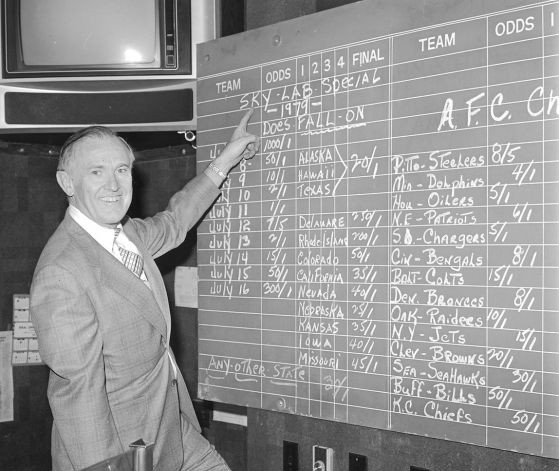 TEAM ODDS 1 2 3 4 FINAL
SKY-LAB-Special
-1979-
Does FALL-ON
1000/1
July 8 50/1 ALASKA
July 9 10/1 HAWAII 20/1
July 10 2/1 TEXAS
July 11 1/1
July 12 7/5 DELAWARE 250/1
July 13 2/1 Rhode Island 200/1
July 14 15/1 COLORADO 50/1
July 15 50/1 CALIFORNIA 35/1
July 16 300/1 NEVADA 40/1
NEBRASKA 35/1
KANSAS 35/1
IOWA 40/1
MISSOURI 45/1
ANY-OTHER-STATE
TEAM ODDS 1
A.F.C. Ch
Pitts-Steelers 8/5
Mia-Dolphins 4/1
Hou-Oilers 5/1
N.E-Patriots 6/1
S.D-Chargers 5/1
Cin-Bengals 8/1
Balt-Colts 15/1
Den. Broncos 8/1
Oak-Raiders 10/1
N.Y-Jets 15/1
Clev-Browns 20/1
Sea-SeaHawks 30/1
Buff-Bills 50/1
K.C. Chiefs 50/1